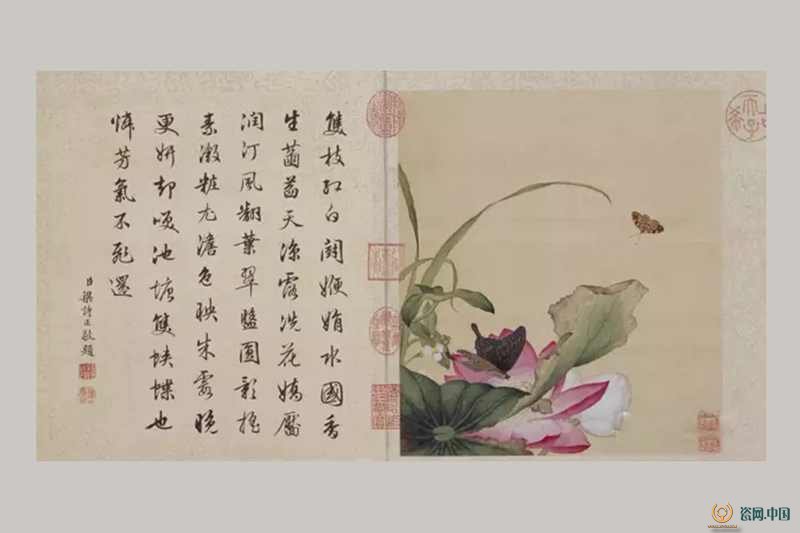 雙枝紅白鬪嬋娟水國香
生菡萏天涼露洗花嬌靨
潤汀風翻葉翠盤圓影搖
素漵粧尤澹色映朱霞晚
更妍却喚池塘雙蛺蝶也
憐芳氣不飛還
臣梁詩正敬題
瓷网.中国